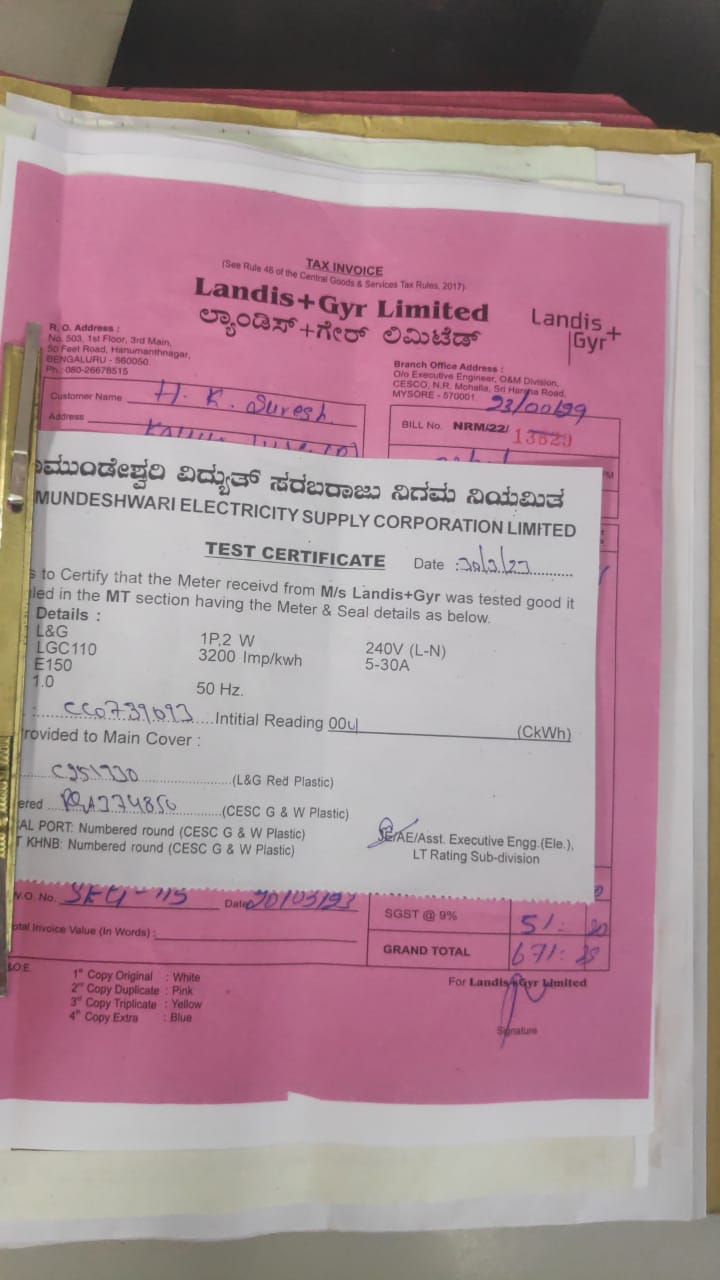 TAX INVOICE
(See Rule 46 of the Central Goods & Services Tax Rules, 2017)
Landis+Gyr Limited
ಲ್ಯಾಂಡಿಸ್+ಗೇರ್ ಲಿಮಿಟೆಡ್
Landis+
Gyr
R. O. Address :
No. 503, 1st Floor, 3rd Main,
50 Feet Road, Hanumanthnagar,
BENGALURU - 560050.
Ph.: 080-26678515
Branch Office Address :
O/o Executive Engineer, O&M Division,
CESCO, N.R. Mohalla, Sri Harsha Road,
MYSORE - 570001.
Customer Name H. K. Suresh
Address
BILL No. NRM/22/ 13829
ಮುಂಡೇಶ್ವರಿ ವಿದ್ಯುತ್ ಸರಬರಾಜು ನಿಗಮ ನಿಯಮಿತ
MUNDESHWARI ELECTRICITY SUPPLY CORPORATION LIMITED
TEST CERTIFICATE Date :
s to Certify that the Meter receivd from M/s Landis+Gyr was tested good it
led in the MT section having the Meter & Seal details as below.
Details :
L&G 1P,2 W 240V (L-N)
LGC110 3200 Imp/kwh 5-30A
E150
1.0 50 Hz.
: Intitial Reading 00 (CkWh)
rovided to Main Cover :
C951930 (L&G Red Plastic)
ered (CESC G & W Plastic)
AL PORT: Numbered round (CESC G & W Plastic)
T KHNB: Numbered round (CESC G & W Plastic)
JE/AE/Asst. Executive Engg.(Ele.),
LT Rating Sub-division
W.O. No. Date 20/03/23
SGST @ 9% 51: 20
otal Invoice Value (In Words) :
GRAND TOTAL 671:
&O.E.
1st Copy Original : White
2nd Copy Duplicate : Pink
3rd Copy Triplicate : Yellow
4th Copy Extra : Blue
For Landis+Gyr Limited
Signature